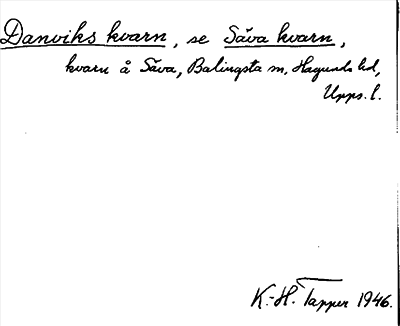 Danviks kvarn, se Säva kvarn,
kvarn å Säva, Balingsta sn, Hagunda hd,
Upps. l.
K.-H. Tapper 1946.